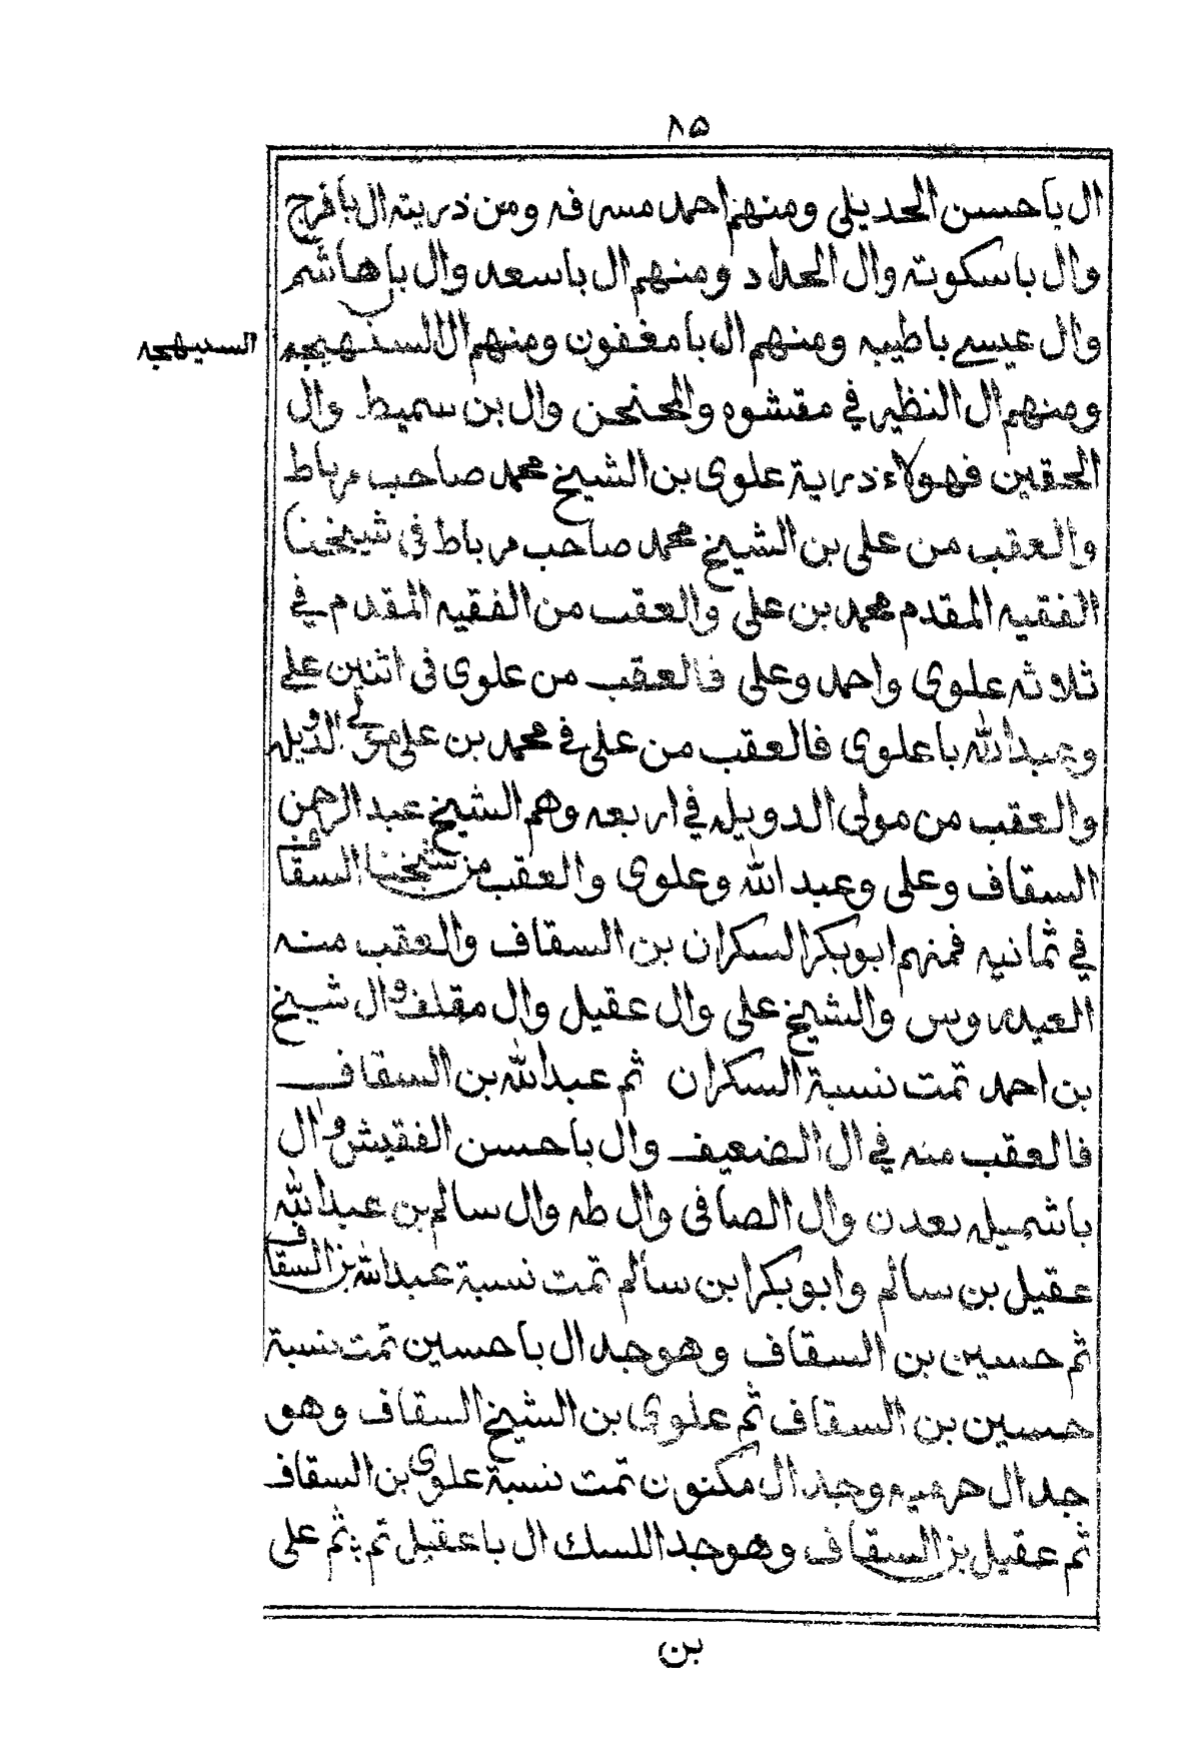 ٨٥
ال باحسن الحديلي ومنهم احمد مسرفه ومن ذريته ال بافرج
وال باسكوته وال الحداد ومنهم ال باسعد وال باهاشم
وال عيسے باطيبه ومنهم ال بامغفون ومنهم ال السنهبجه
السيهجه
ومنهم ال النظير في مقشوه والمحنحن وال بن سميط وال
الحقين فهولاء ذرية علوى بن الشيخ محمد صاحب مرباط
والعقب من على بن الشيخ محمد صاحب مرباط فى شيخنا
الفقيه المقدم محمد بن على والعقب من الفقيه المقدم في
ثلاثه علوى واحمد وعلى فالعقب من علوى فى اثنين علے
وعبدالله باعلوى فالعقب من على في محمد بن على مولى الدويله
والعقب من مولى الدويله في اربعه وهم الشيخ عبد الرحمن
السقاف وعلى وعبد الله وعلوى والعقب من شيخنا السقاف
في ثمانيه فمنهم ابوبكر السكران بن السقاف والعقب منه
العيدروس والشيخ على وال عقيل وال مقلف وال شيخ
بن احمد تمت نسبة السكران ثم عبدالله بن السقاف
فالعقب منه في ال الضعيف وال باحسن الفقيش وال
باشميله بعدن وال الصافى وال طه وال سالم بن عبدالله
عقيل بن سالم وابوبكر ابن سالم تمت نسبة عبدالله بن السقاف
ثم حسين بن السقاف وهوجد ال باحسين تمت نسبة
حسين بن السقاف ثم علوى بن الشيخ السقاف وهو
جد ال حرميه وجد ال مكنون تمت نسبة علوى بن السقاف
ثم عقيل بن السقاف وهوجد اللسك ال باعقيل تم ثم على
بن